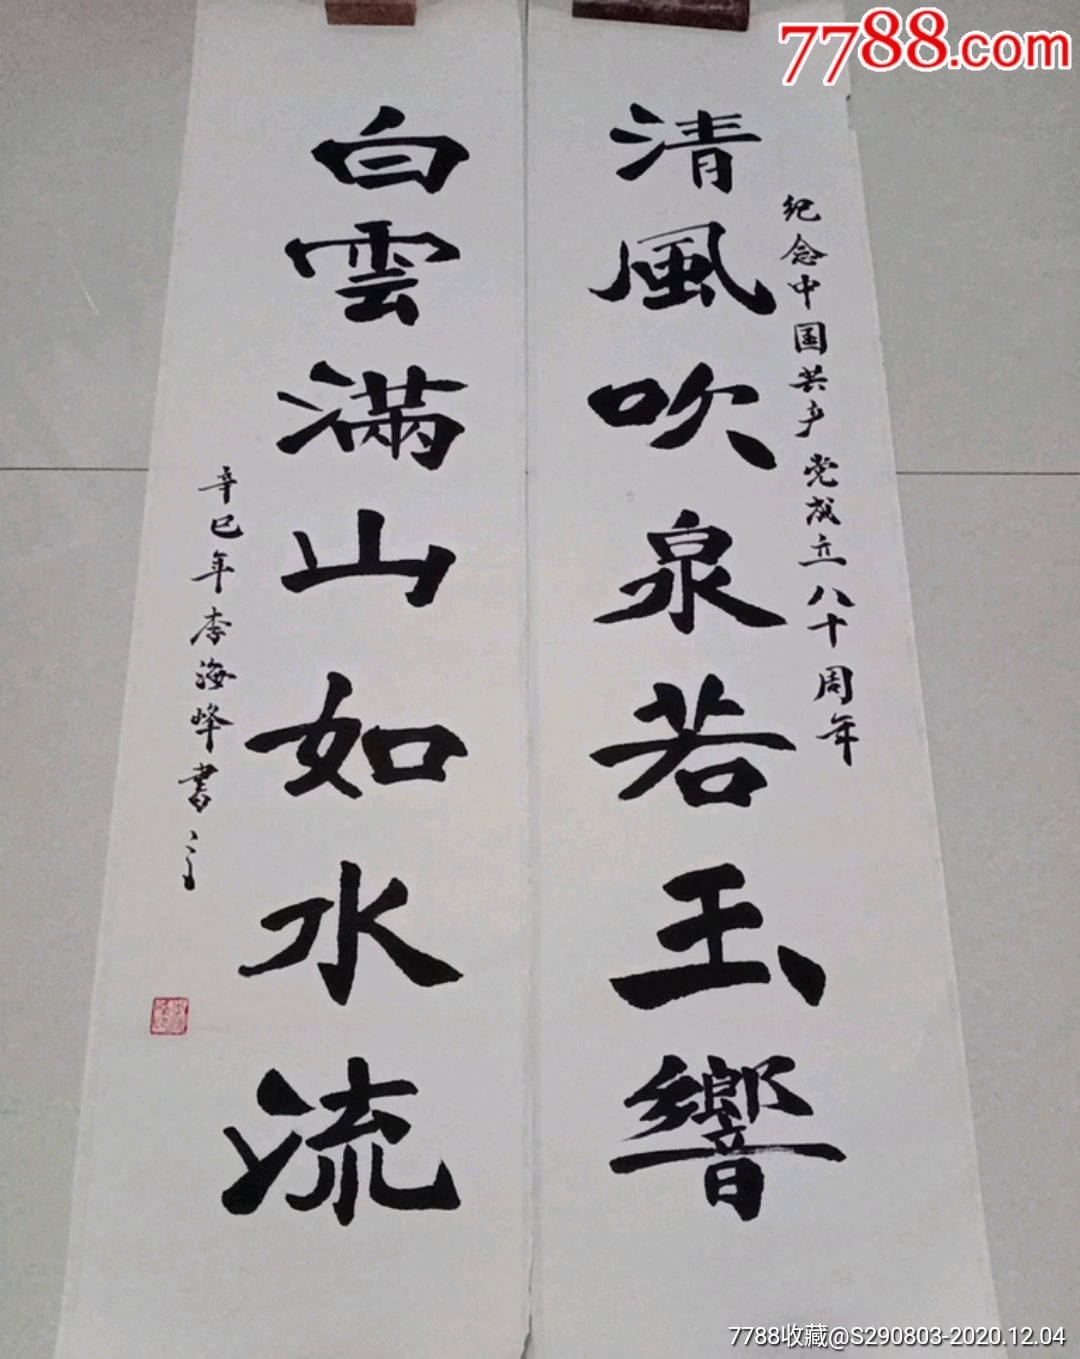 7788.com
纪念中国共产党成立八十周年
清風吹泉若玉響
白雲滿山如水流
辛巳年李海峰書
7788收藏@S290803-2020.12.04